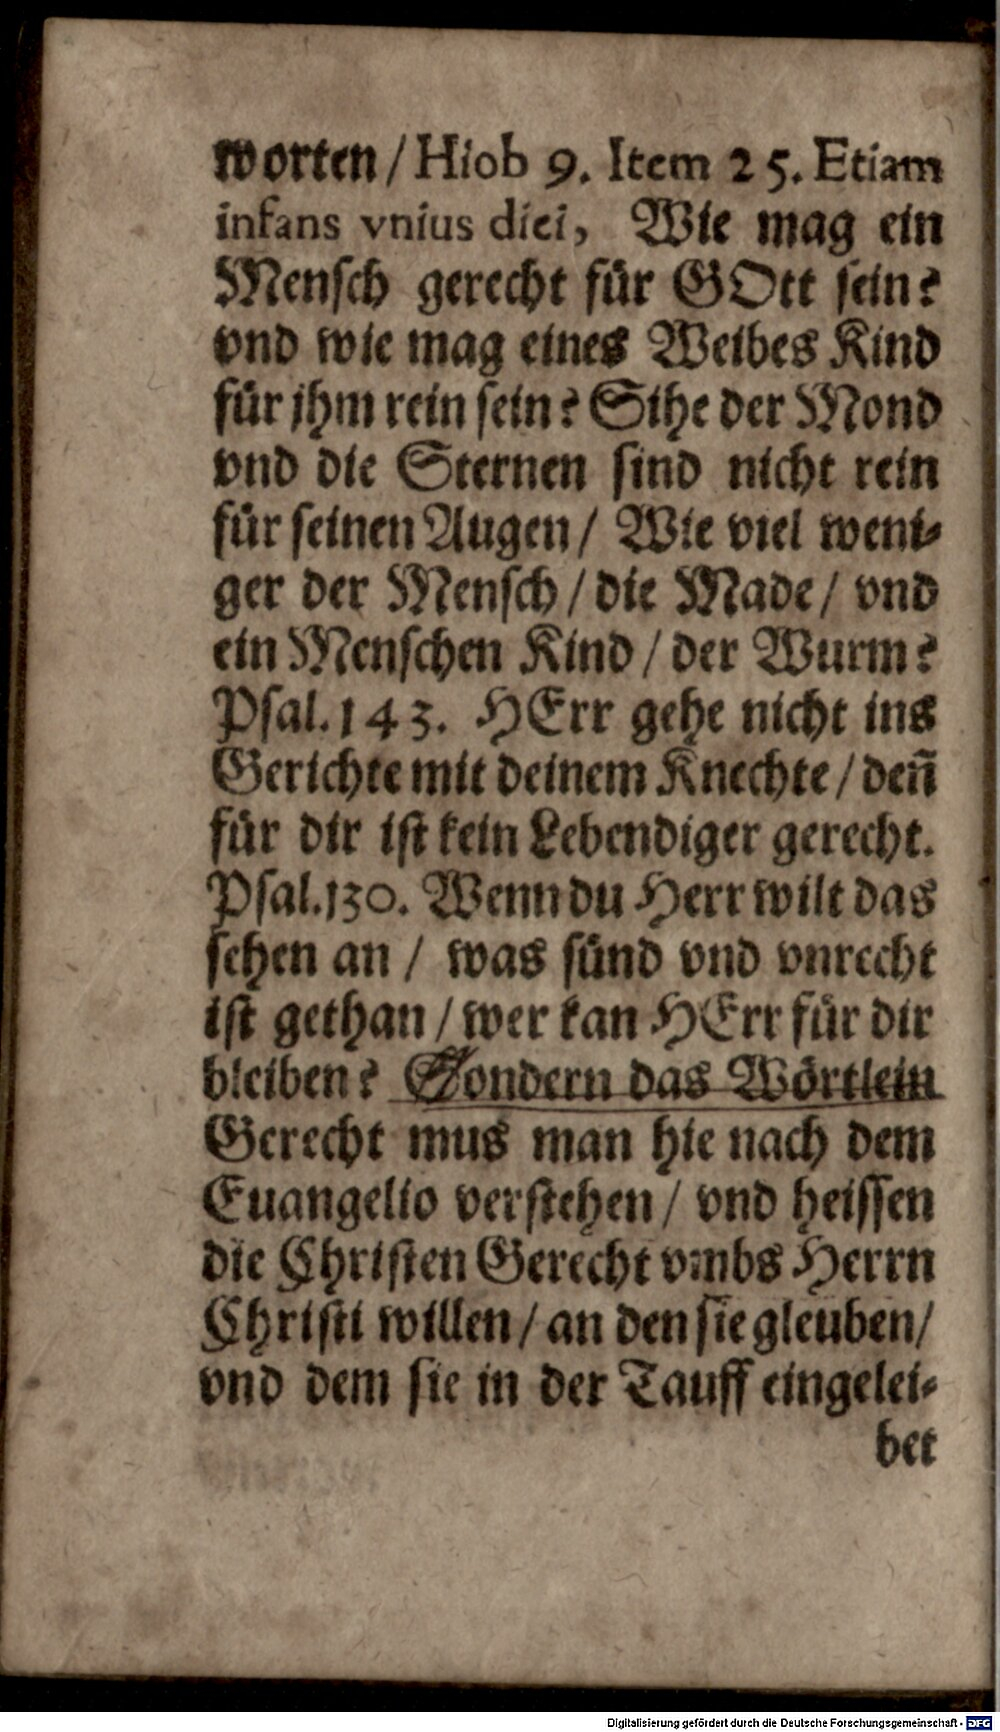 worten / Hiob 9. Item 25. Etiam
infans vnius diei, Wie mag ein
Mensch gerecht für GOtt sein?
vnd wie mag eines Weibes Kind
für jhm rein sein? Sihe der Mond
vnd die Sternen sind nicht rein
für seinen Augen / Wie viel weni-
ger der Mensch / die Made / vnd
ein Menschen Kind / der Wurm?
Psal. 143. HErr gehe nicht ins
Gerichte mit deinem Knechte / deñ
für dir ist kein Lebendiger gerecht.
Psal. 130. Wenn du Herr wilt das
sehen an / was sünd vnd vnrecht
ist gethan / wer kan HErr für dir
bleiben? Sondern das Wörtlein
Gerecht mus man hie nach dem
Euangelio verstehen / vnd heissen
die Christen Gerecht vmbs Herrn
Christi willen / an den sie gleuben /
vnd dem sie in der Tauff eingelei-
bet
Digitalisierung gefördert durch die Deutsche Forschungsgemeinschaft - DFG